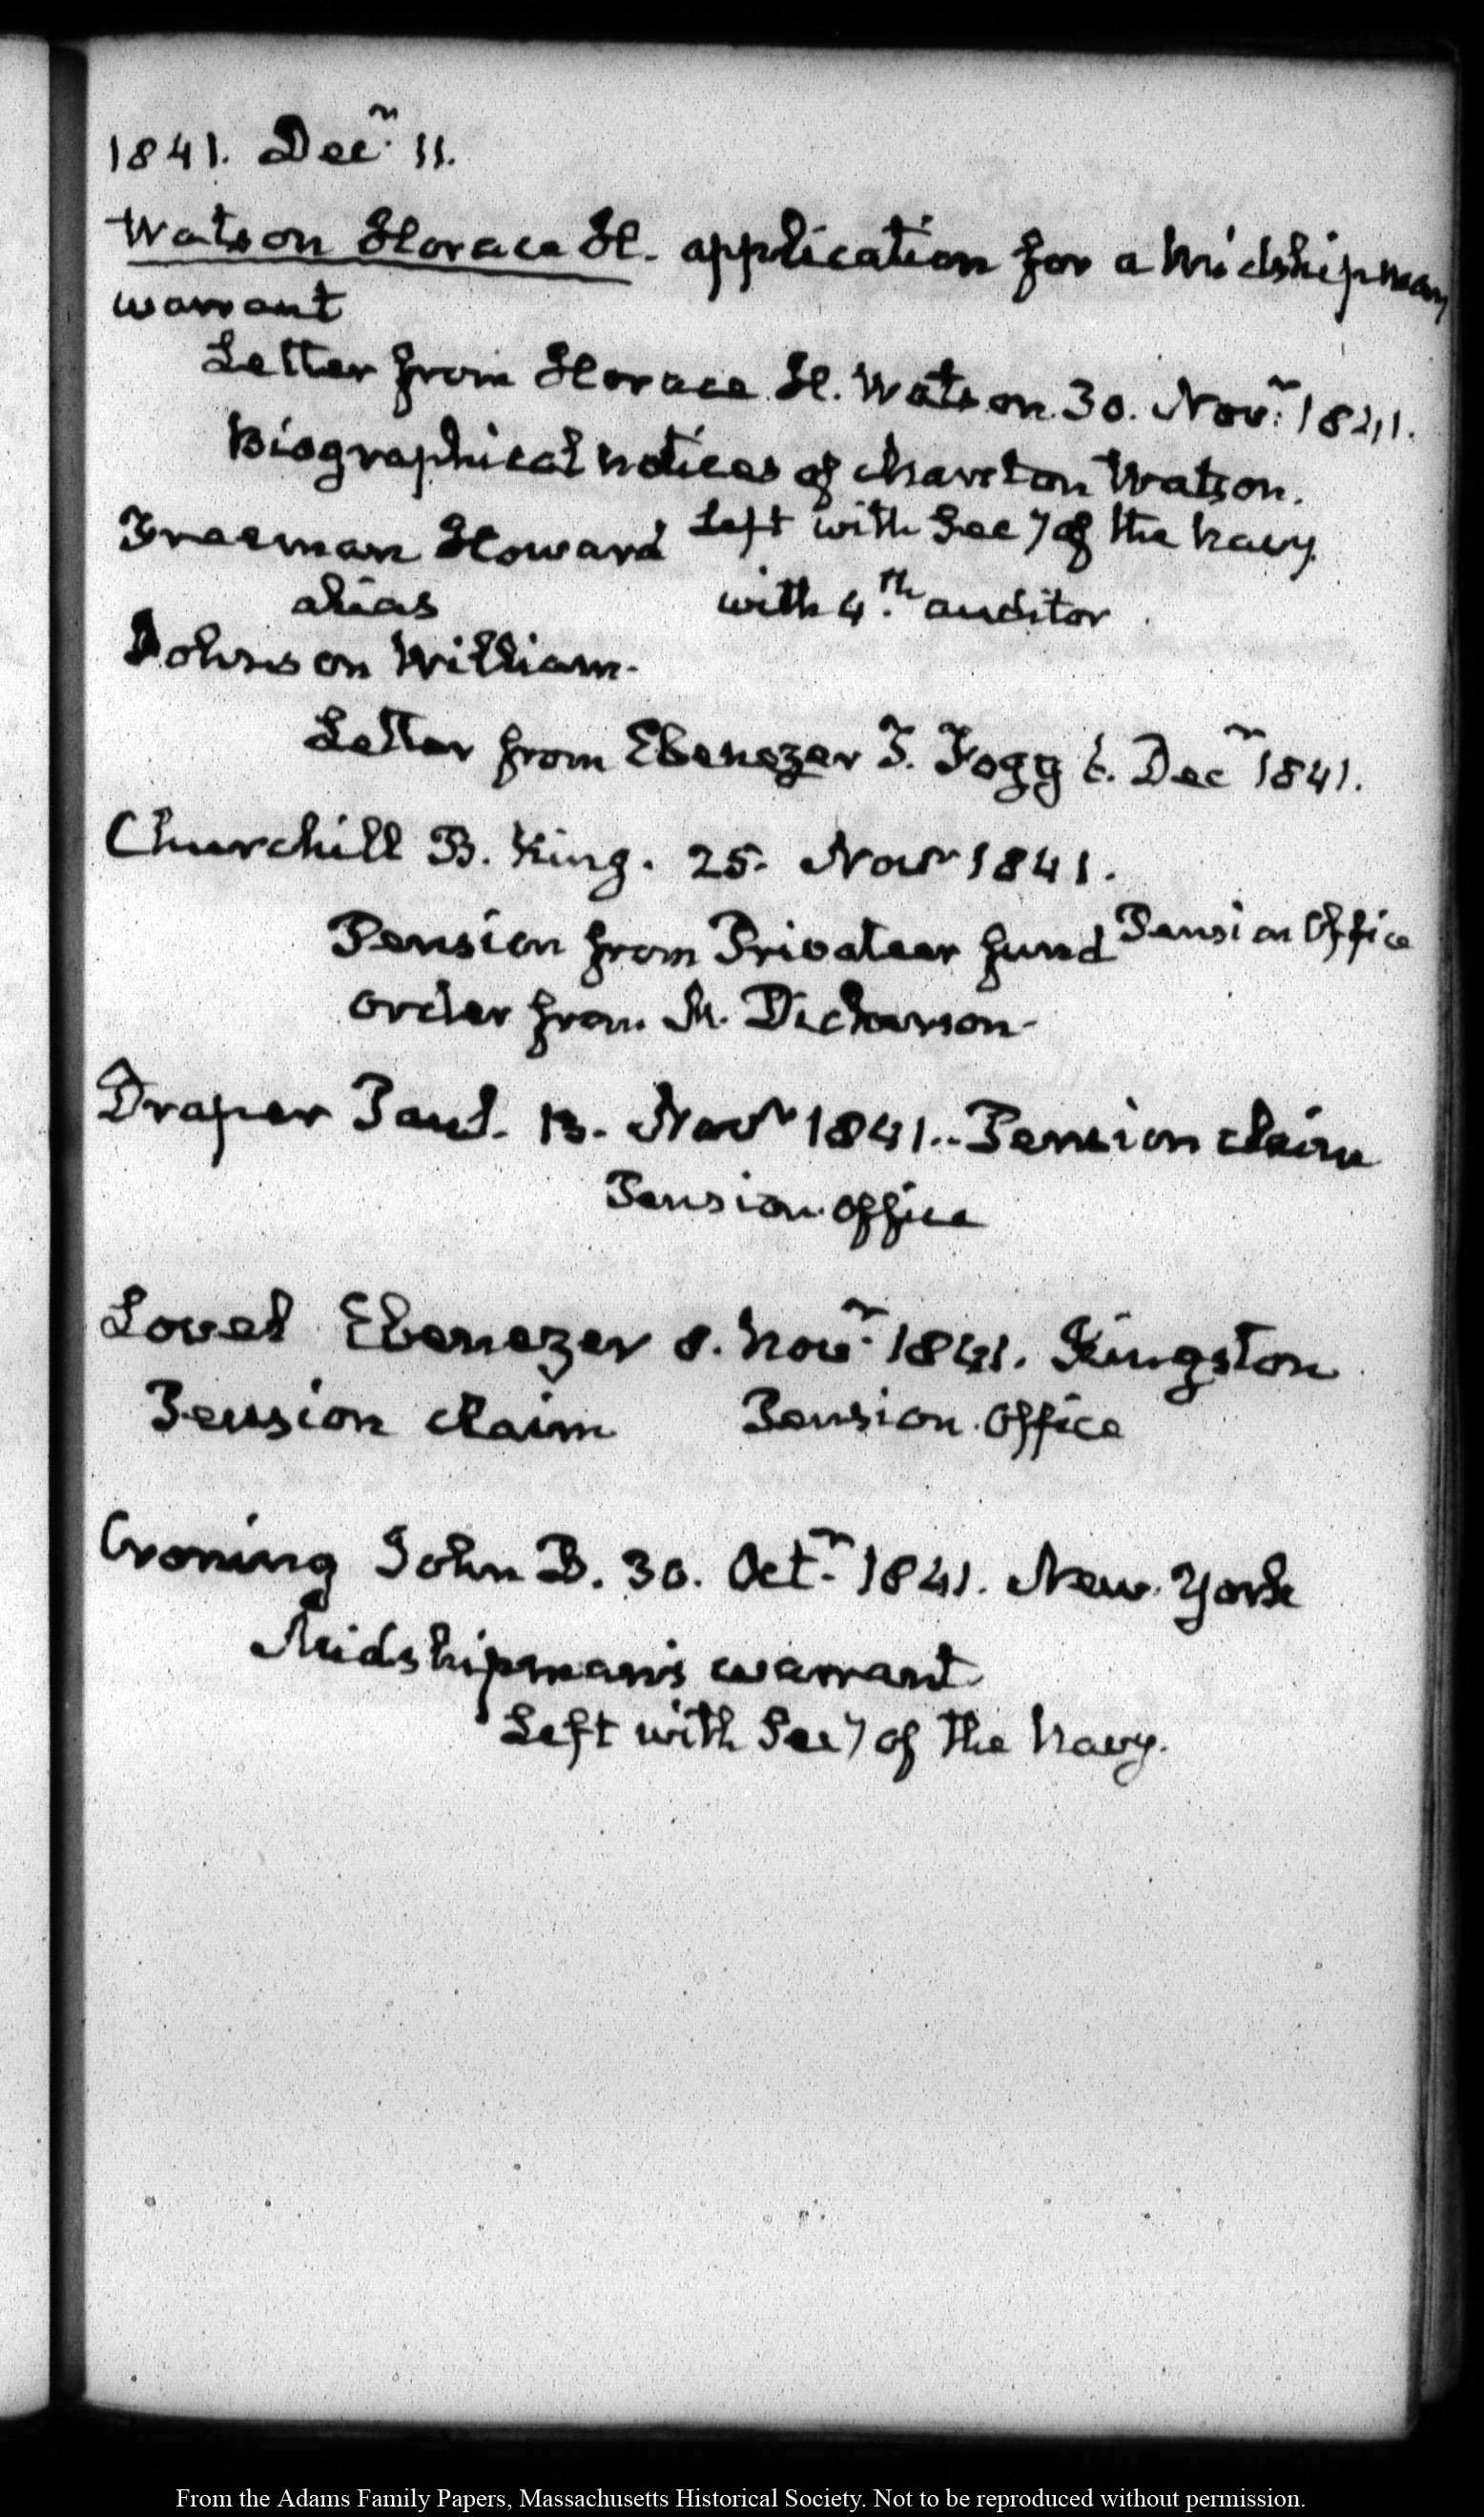 1841. Decr. 11.
Watson Horace H. application for a Midshipman
warrant
Letter from Horace H. Watson 30. Novr. 1841.
Biographical notices of Marston Watson.
Left with Secy of the Navy
Freeman Howard
alias with 4.th auditor
Johnson William.
Letter from Ebenezer T. Fogg 6. Decr 1841.
Churchill B. King. 25. Novr 1841.
Pension from Privateer fund Pension Office
order from M. Dickerson.
Draper Paul. 13. Novr 1841.. Pension claim
Pension office
Lovel Ebenezer 8. Novr. 1841. Kingston
Pension claim Pension office
Croning John B. 30. Octr. 1841. New York
Midshipman's warrant
Left with Secy of the Navy.
From the Adams Family Papers, Massachusetts Historical Society. Not to be reproduced without permission.